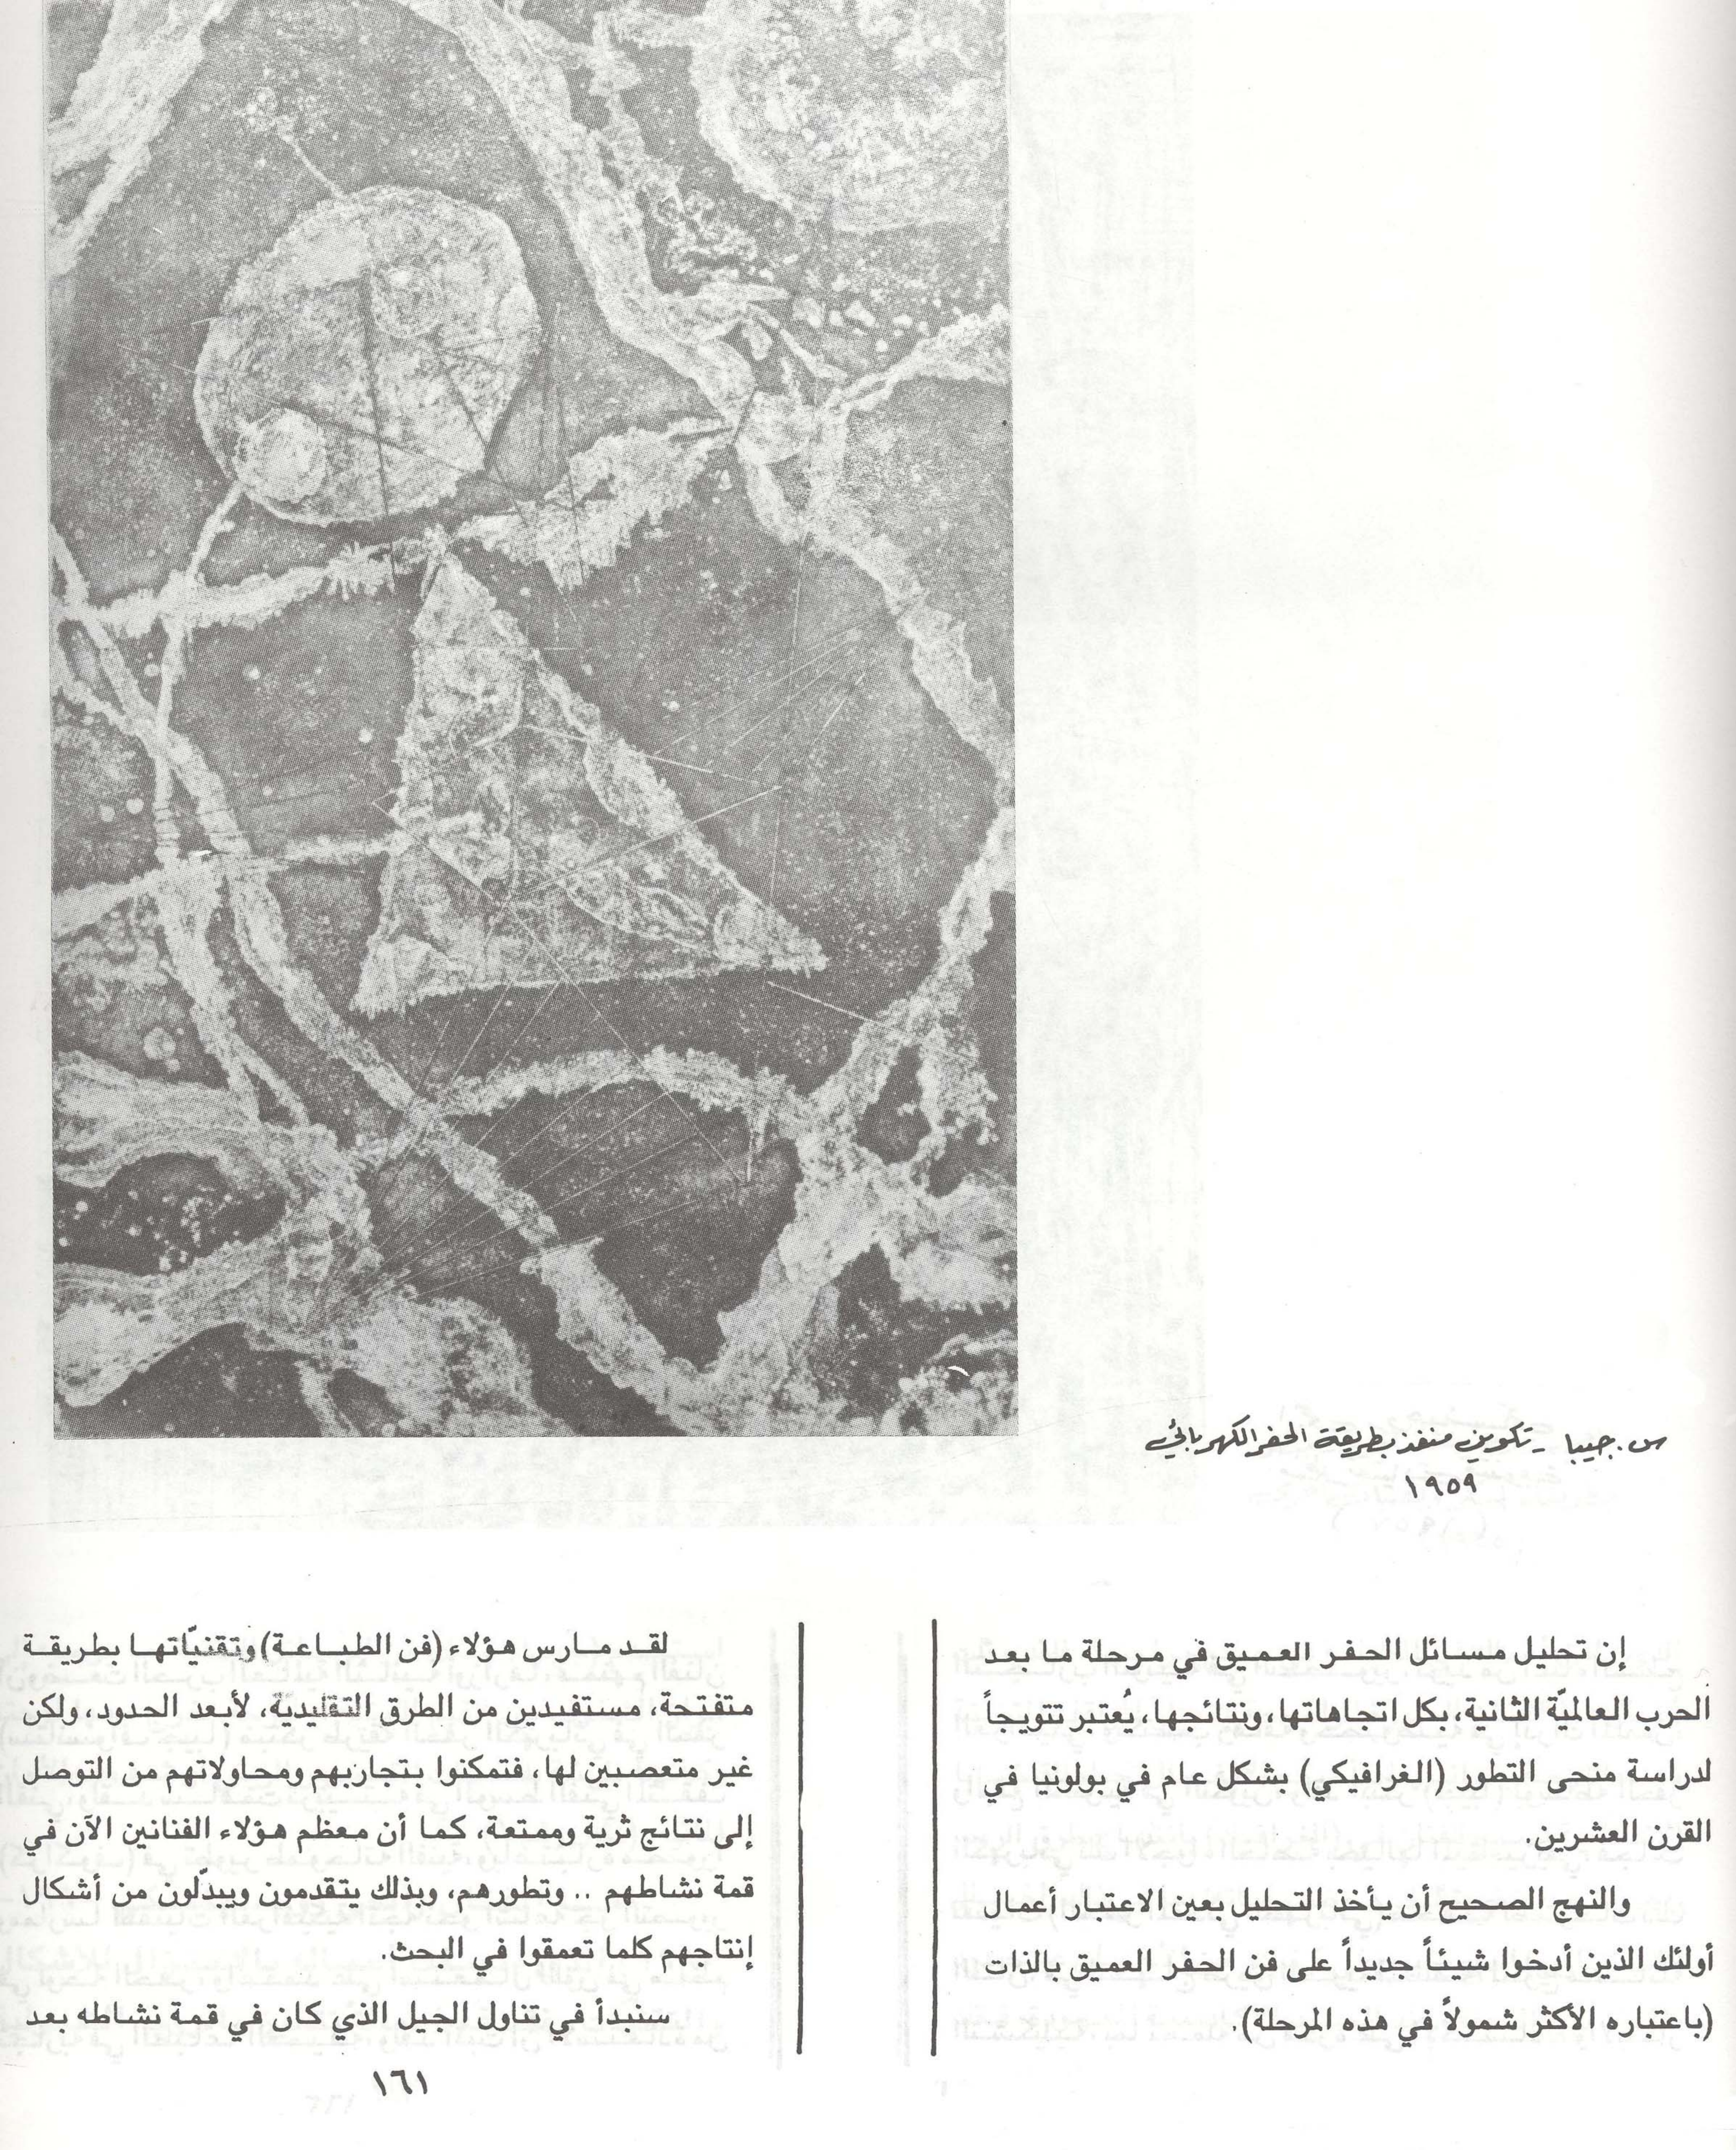 س. جيبا - تكوين منفذ بطريقة الحفر الكهربائي
١٩٥٩
إن تحليل مسائل الحفر العميق في مرحلة ما بعد
الحرب العالميّة الثانية، بكل اتجاهاتها، ونتائجها، يُعتبر تتويجاً
لدراسة منحى التطور (الغرافيكي) بشكل عام في بولونيا في
القرن العشرين.
والنهج الصحيح أن يأخذ التحليل بعين الاعتبار أعمال
أولئك الذين أدخوا شيئاً جديداً على فن الحفر العميق بالذات
(باعتباره الأكثر شمولاً في هذه المرحلة).
لقد مارس هؤلاء (فن الطباعة) وتقنيّاتها بطريقة
متفتحة، مستفيدين من الطرق التقليدية، لأبعد الحدود، ولكن
غير متعصبين لها، فتمكنوا بتجاربهم ومحاولاتهم من التوصل
إلى نتائج ثرية وممتعة، كما أن معظم هؤلاء الفنانين الآن في
قمة نشاطهم .. وتطورهم، وبذلك يتقدمون ويبدّلون من أشكال
إنتاجهم كلما تعمقوا في البحث.
سنبدأ في تناول الجيل الذي كان في قمة نشاطه بعد
١٦١